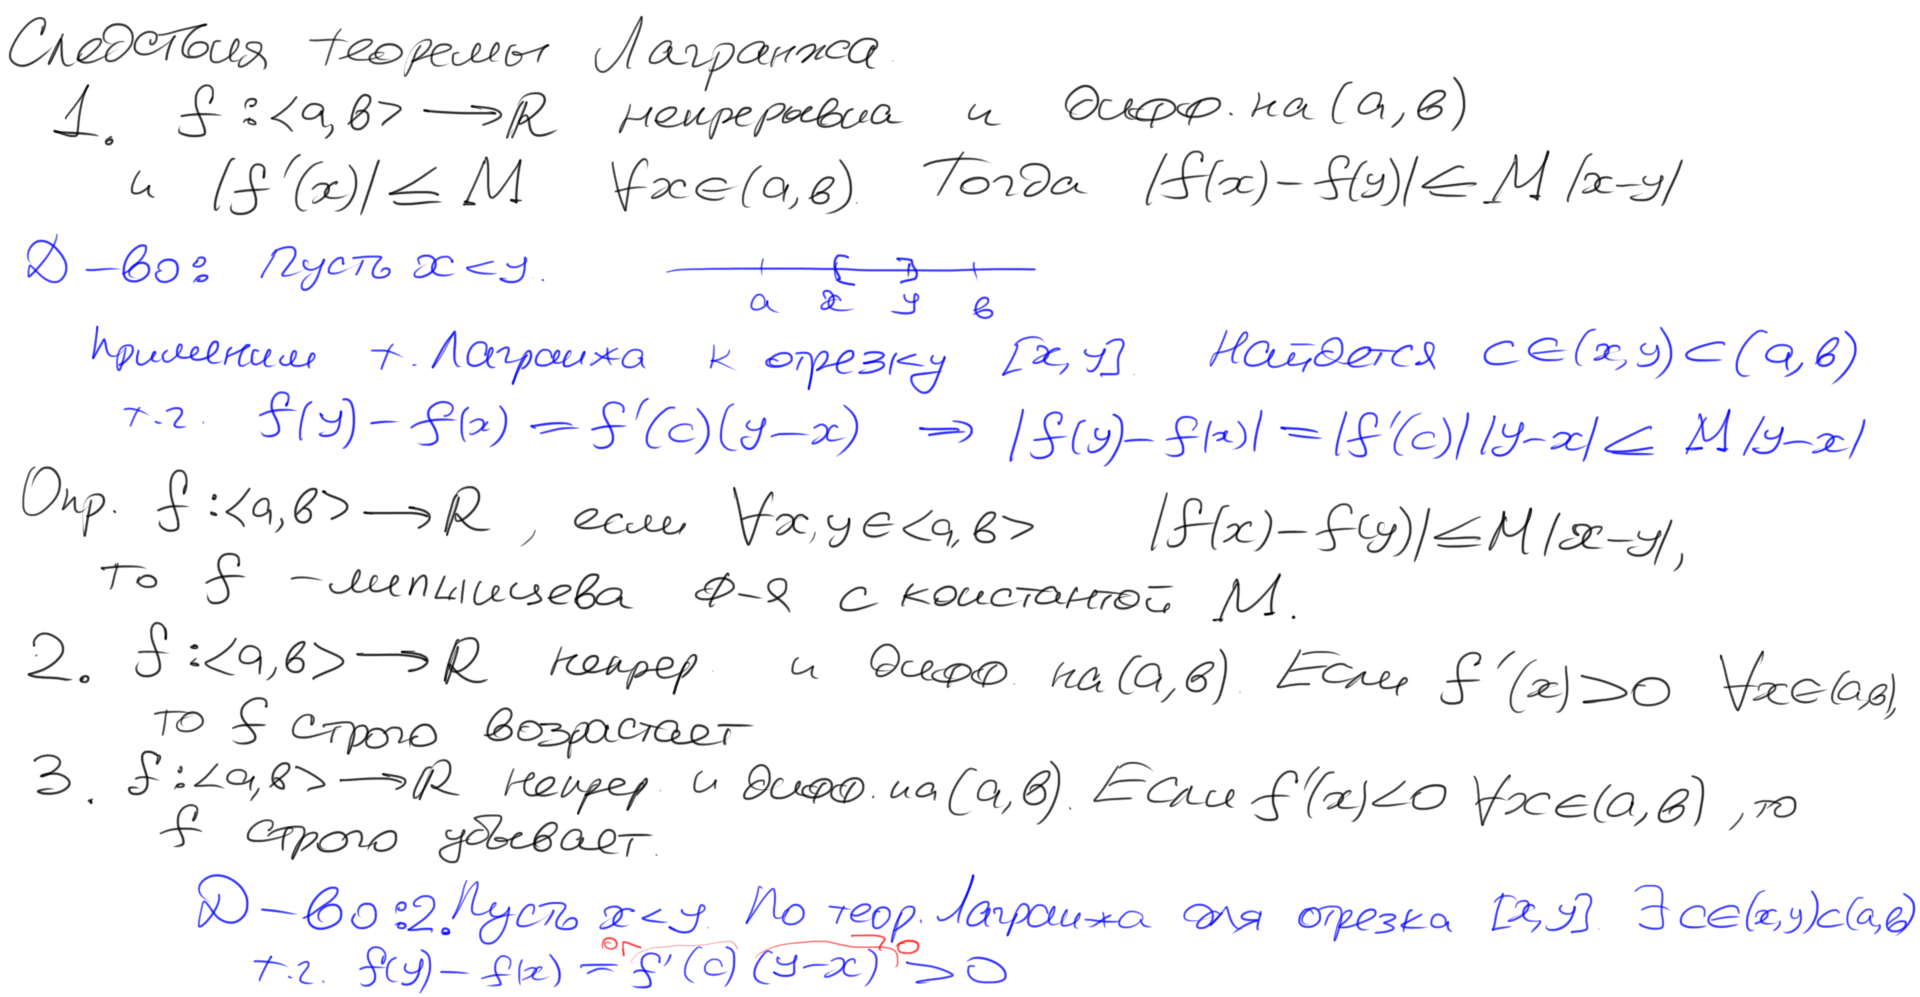 Следствия теоремы Лагранжа
1. f:<a,b> → ℝ непрерывна и дифф. на (a,b)
и |f'(x)| ≤ M ∀x∈(a,b). Тогда |f(x)-f(y)| ≤ M|x-y|
Д-во: Пусть x<y.
a x y b
Применим т. Лагранжа к отрезку [x,y]. Найдется c∈(x,y)⊂(a,b)
т.ч. f(y)-f(x) = f'(c)(y-x) ⇒ |f(y)-f(x)| = |f'(c)||y-x| ≤ M|y-x|
Опр. f:<a,b> → ℝ, если ∀x,y∈<a,b> |f(x)-f(y)| ≤ M|x-y|,
то f - липшицева ф-я с константой M.
2. f:<a,b> → ℝ непрер. и дифф. на (a,b). Если f'(x)>0 ∀x∈(a,b),
то f строго возрастает
3. f:<a,b> → ℝ непрер. и дифф. на (a,b). Если f'(x)<0 ∀x∈(a,b), то
f строго убывает.
Д-во: 2. Пусть x<y. По теор. Лагранжа для отрезка [x,y] ∃c∈(x,y)⊂(a,b)
0 0
т.ч. f(y)-f(x) = f'(c)(y-x) > 0